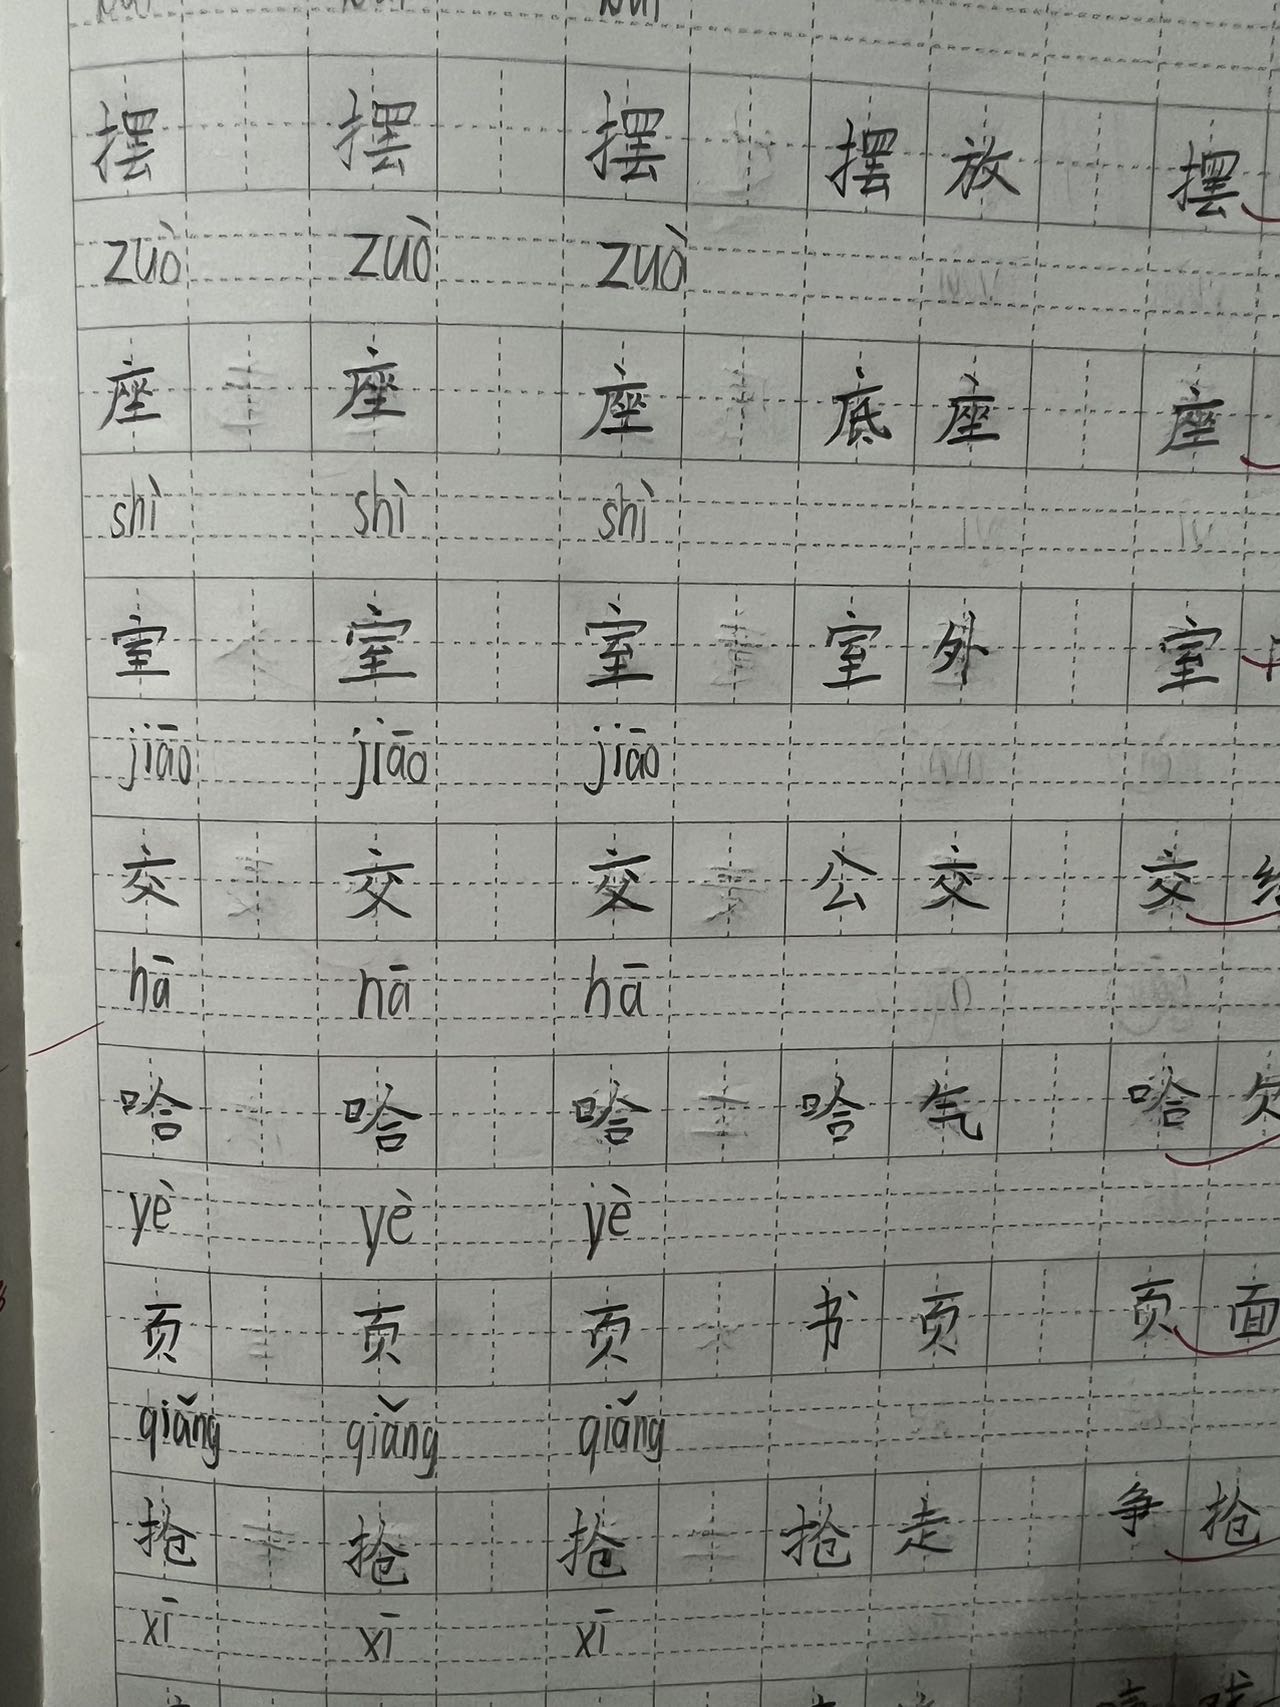 摆 摆 摆 摆放 摆
zuò zuò zuò
座 座 座 底座 座
shì shì shì
室 室 室 室外 室
jiāo jiāo jiāo
交 交 交 公交 交
hā hā hā
哈 哈 哈 哈气 哈欠
yè yè yè
页 页 页 书页 页面
qiǎng qiǎng qiǎng
抢 抢 抢 抢走 争抢
xī xī xī